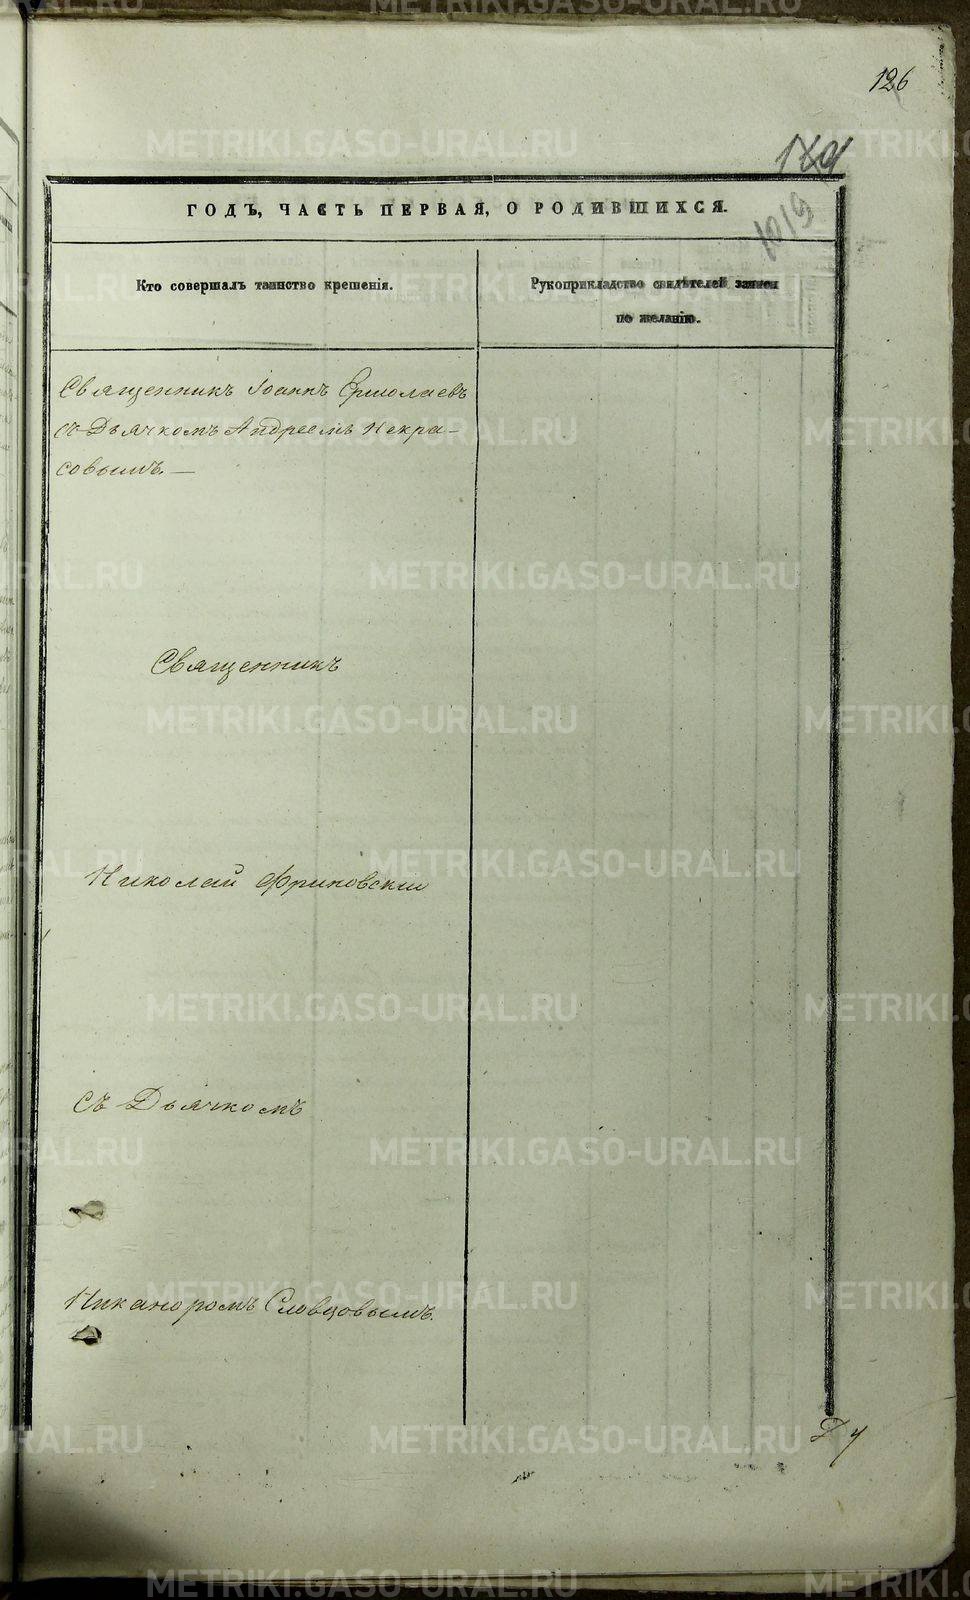 126
1019
ГОДЪ, ЧАСТЬ ПЕРВАЯ, О РОДИВШИХСЯ.
Кто совершалъ таинство крещенія.
Рукоприкладство свидѣтелей записи
по желанію.
Священникъ Іоаннъ Ермолаевъ
съ Дьячкомъ Андреемъ Некра-
совымъ. —
Священникъ
Николай Фриновскій
съ Дьячкомъ
Никаноромъ Словцовымъ.
METRIKI.GASO-URAL.RU